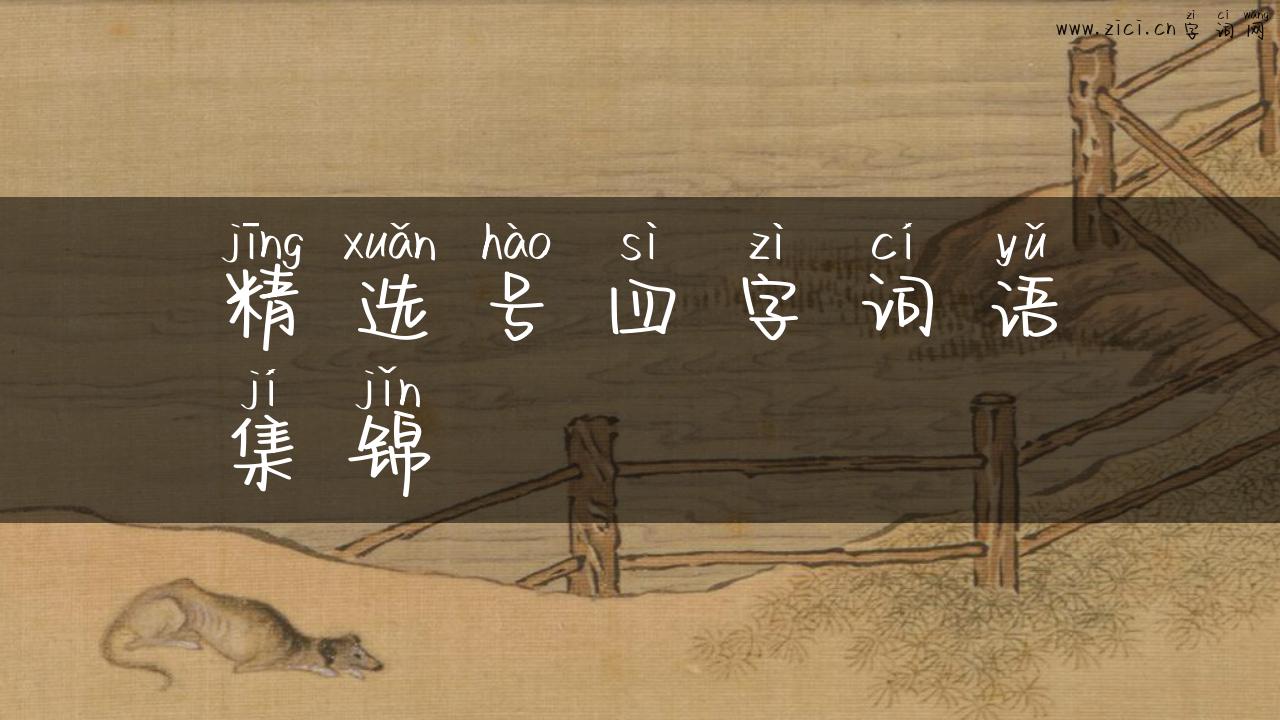 zì cí wǎng
www.zici.cn字词网
jīng xuǎn hào sì zì cí yǔ
精选号四字词语
jí jǐn
集锦